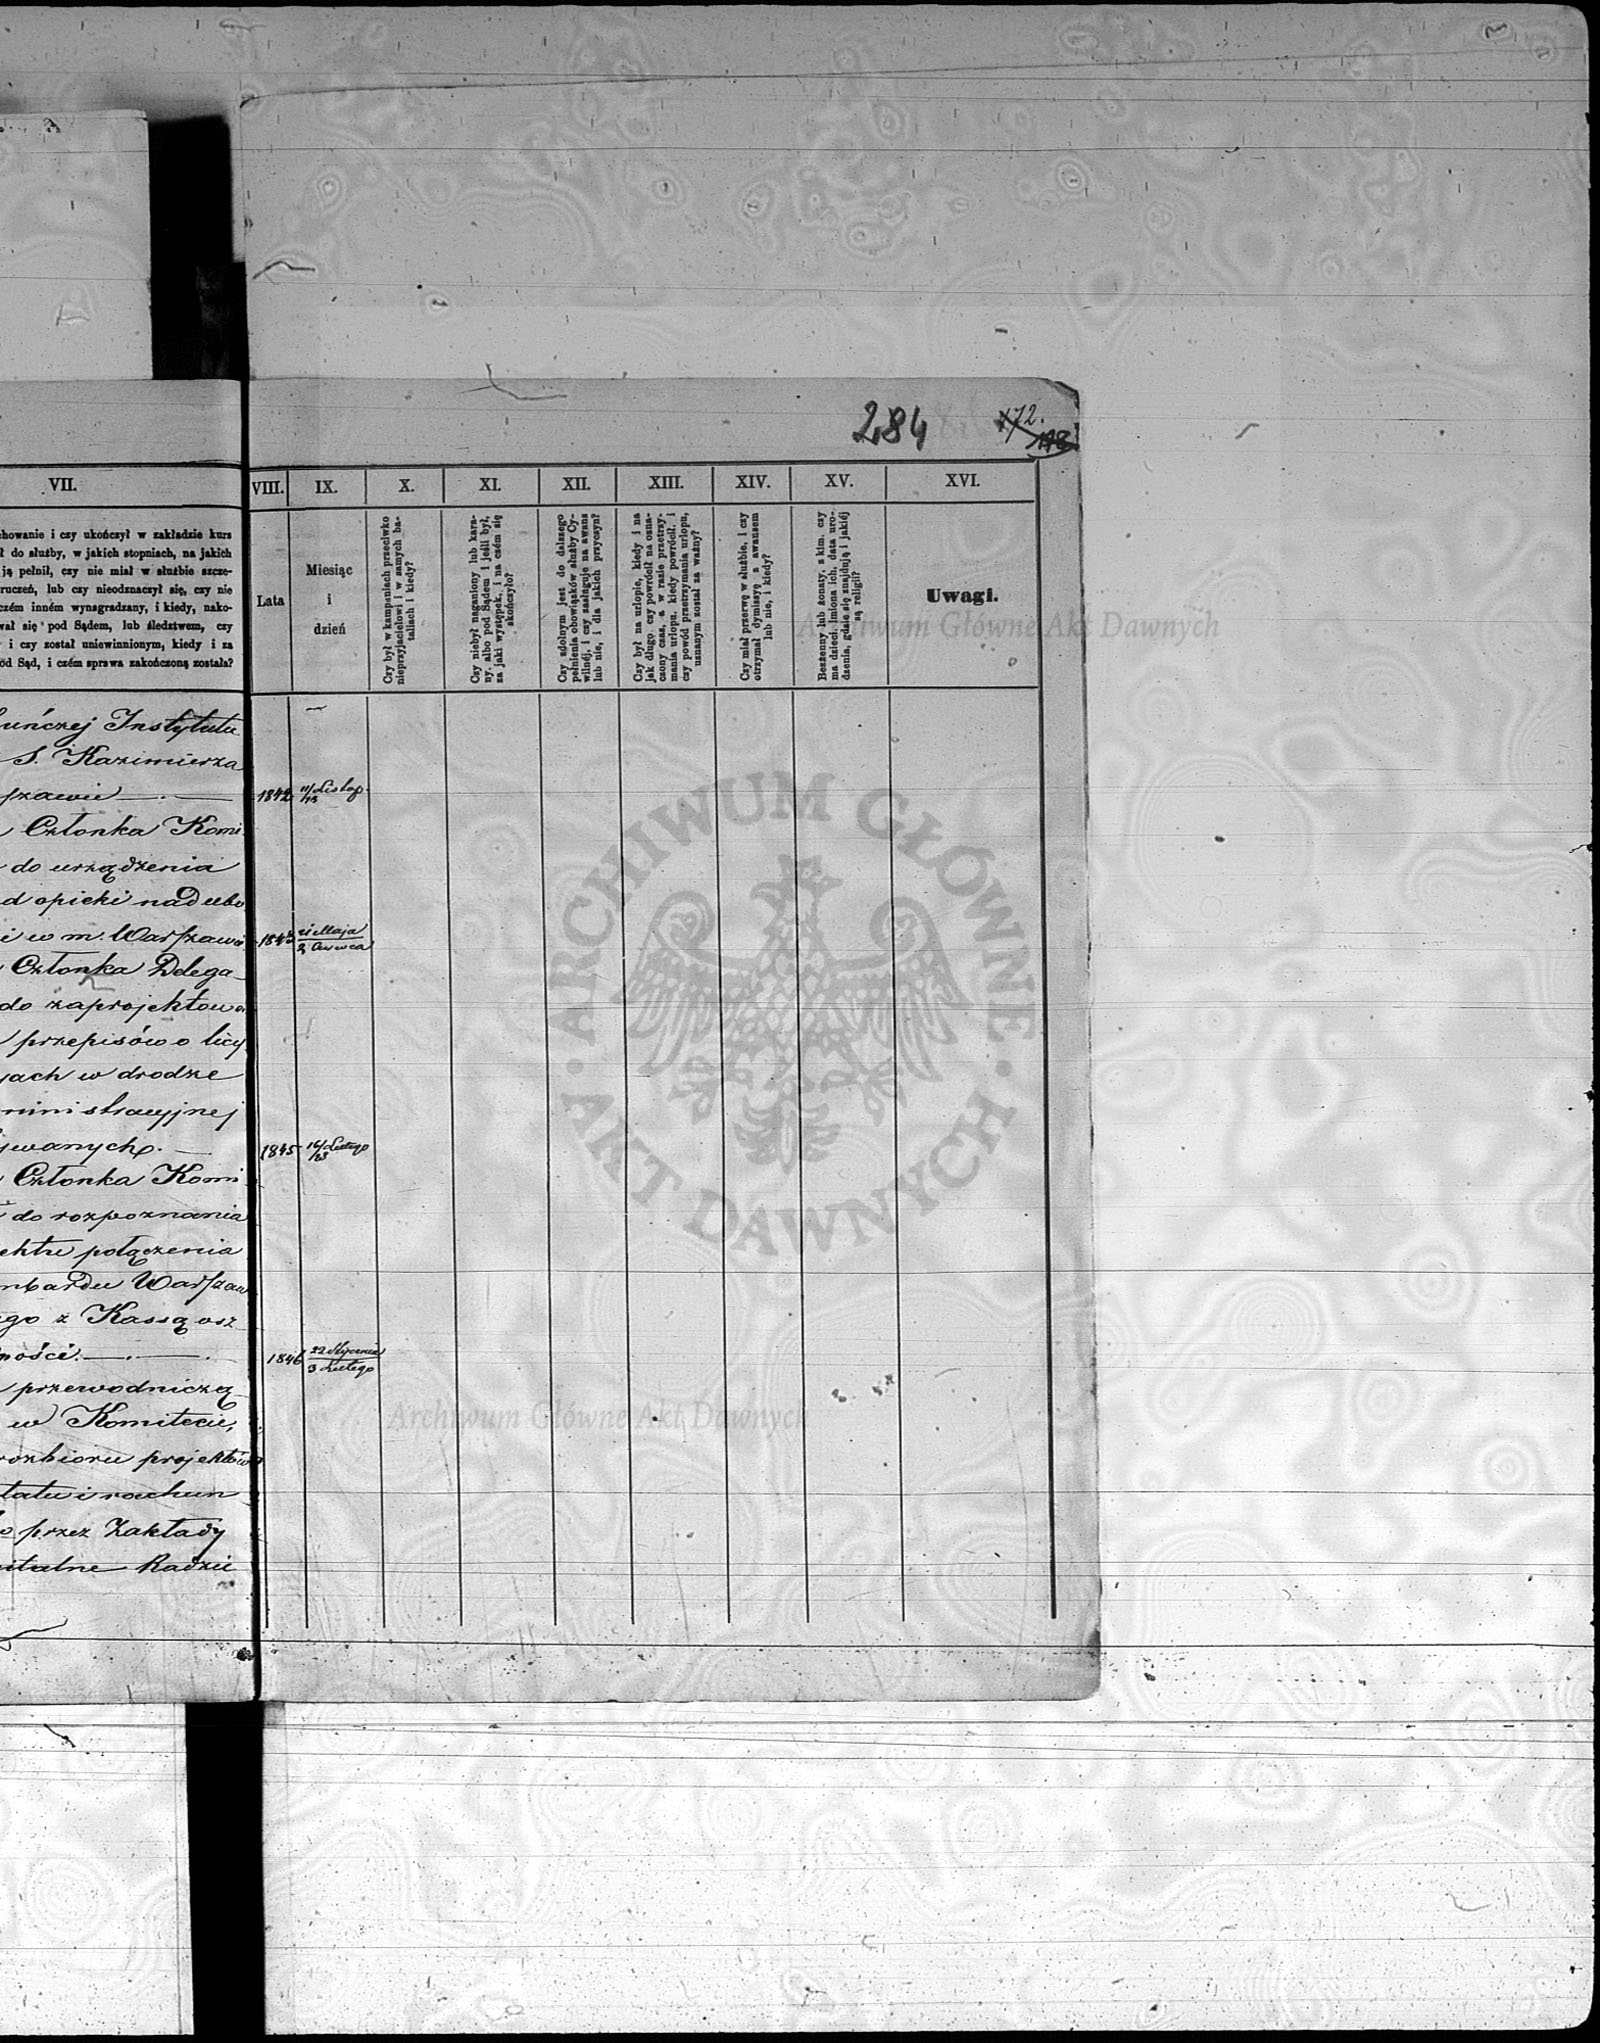 284
172.
118
VII.
VIII.
IX.
X.
XI.
XII.
XIII.
XIV.
XV.
XVI.
chowanie i czy ukończył w zakładzie kurs
ł do służby, w jakich stopniach, na jakich
ją pełnił, czy nie miał w służbie szcze-
ruczeń, lub czy nieodznaczył się, czy nie
czém inném wynagradzany, i kiedy, nako-
wał się pod Sądem, lub śledztwem, czy
i czy został uniewinnionym, kiedy i za
od Sąd, i czém sprawa zakończoną została?
Lata
Miesiąc
i
dzień
Czy był w kampaniach przeciwko
nieprzyjacielowi i w samych ba-
taliach i kiedy?
Czy niebył naganiony lub kara-
ny, albo pod Sądem i jeśli był,
za jaki występek, i na czém się
skończyło?
Czy zdolnym jest do dalszego
pełnienia obowiązków służby Cy-
wilnéj, i czy zasługuje na awans
lub nie, i dla jakich przyczyn?
Czy był na urlopie, kiedy i na
jak długo, czy powrócił na ozna-
czony czas, a w razie przetrzy-
mania urlopu, kiedy powrócił, i
czy powód przetrzymania urlopu,
uznanym został za ważny?
Czy miał przerwę w służbie, i czy
otrzymał dymisyę z awansem
lub nie, i kiedy?
Bezżenny lub żonaty, z kim, czy
ma dzieci, imiona ich, data uro-
dzenia, gdzie się znajdują i jakiéj
są religii?
Uwagi.
uńczej Instytutu
S. Kazimierza
szawie
1842 11/23 Listop.
Członka Komi
do urządzenia
d opieki nad ubo
i w m. Warszawie
1843 21 Maja
2 Czerwca
Członka Delega-
do zaprojektowa
przepisów o licy
jach w drodze
ministracyjnej
ywanych.
1845 16/28 Lutego
Członka Komi
do rozpoznania
ektu połączenia
mbardu Warszaw
go z Kassą osz
ności.
1846 22 Stycznia
3 Lutego
przewodniczą-
w Komitecie,
rozbioru projektów
tatu i rachun
o przez Zakłady
italne Radzie
ARCHIWUM GŁÓWNE · AKT DAWNYCH ·
Archiwum Główne Akt Dawnych
Archiwum Główne Akt Dawnych